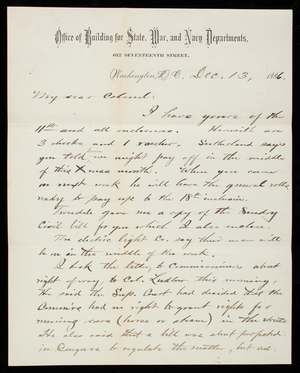 Office of Building for State, War, and Navy Departments,
617 SEVENTEENTH STREET,
Washington, D.C. Dec. 13, 1886.
My dear Colonel:
I have yours of the
11th and all inclosures. Herewith are
3 checks and 1 voucher. Sutherland says
you told him we might pay off in the middle
of this Xmas month. When you come
on next week he will have the general rolls
ready to pay up to the 18th inclusive.
gave me a copy of the Sundry
Civil bill for you which I also inclose.
The electric light Co. say their man will
be in the middle of the week.
I took the letter of Commissioner about
right of way, to Col. Ludlow this morning.
He said the Sup. Court had decided that the
Commrs had no right to grant rights for
running cars (horse or steam) in the streets
He also said that a bill was about prepared
in Congress to regulate the matter, but